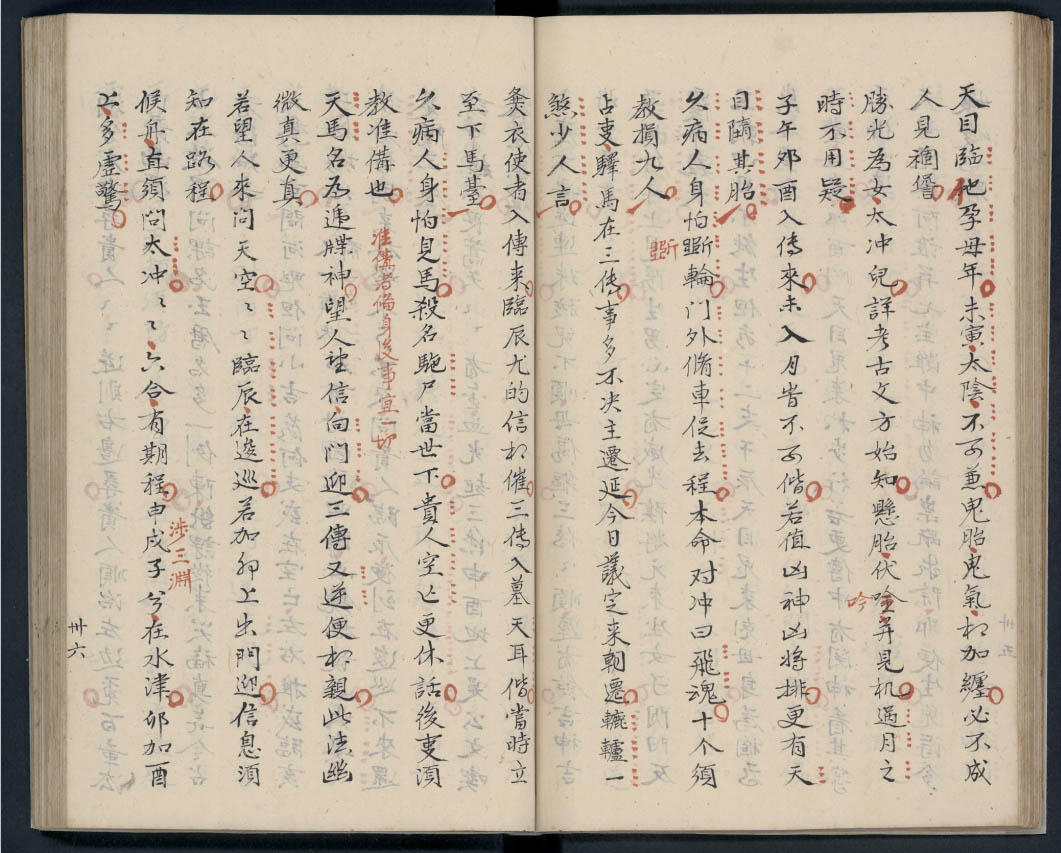 天目臨他孕母年未寅太陰不可兼鬼胎鬼氣相加纏必不成
人見裀褥
勝光為女太冲兒詳考古文方始知懸胎伏唫并見机過月之
吟
時不用疑
子午卯酉入傳來未入月皆不可偕若值凶神凶將排更有天
目隨其胎
久病人身怕䡖輪門外脩車促去程本命对冲曰飛魂十个須
䡖
教損九人
占吏驛馬在三傳事多不决主遷延今日議定来朝遷轆轤一
煞少人言
灸衣使者入傳来臨辰尤的信相催三傳入墓天耳偕當時立
至下馬臺
久病人身怕見馬殺名䭾尸當世下貴人空亡更休話後吏須
教准備也
准備者倫身後事宜一切
天馬名為遞牒神望人望信向門迎三傳又逆便相親此法幽
微真更真
若望人來問天空〻〻臨辰在逡巡若加卯上出門迎信息須
知在路程
候舟直須問太冲〻〻六合有期程申戌子兮在水津卯加酉
涉三淵
上多虛驚
卅六